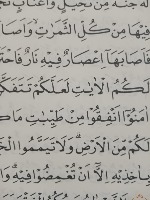 لَهُ جَنَّةٌ مِنْ نَخِيلٍ وَاَعْنَابٍ
فِيهَا مِنْ كُلِّ الثَّمَرَاتِ وَاَصَا
فَاَصَابَهَا اِعْصَارٌ فِيهِ نَارٌ فَاحْتَ
لَكُمُ الْاٰيَاتِ لَعَلَّكُمْ تَتَفَكَّ
اٰمَنُوٓا اَنْفِقُوا مِنْ طَيِّبَاتِ مَاكَ
لَكُمْ مِنَ الْاَرْضِ وَلَا تَيَمَّمُوا الْخَ
بِاٰخِذِيهِ اِلَّٓا اَنْ تُغْمِضُوا فِيهِ